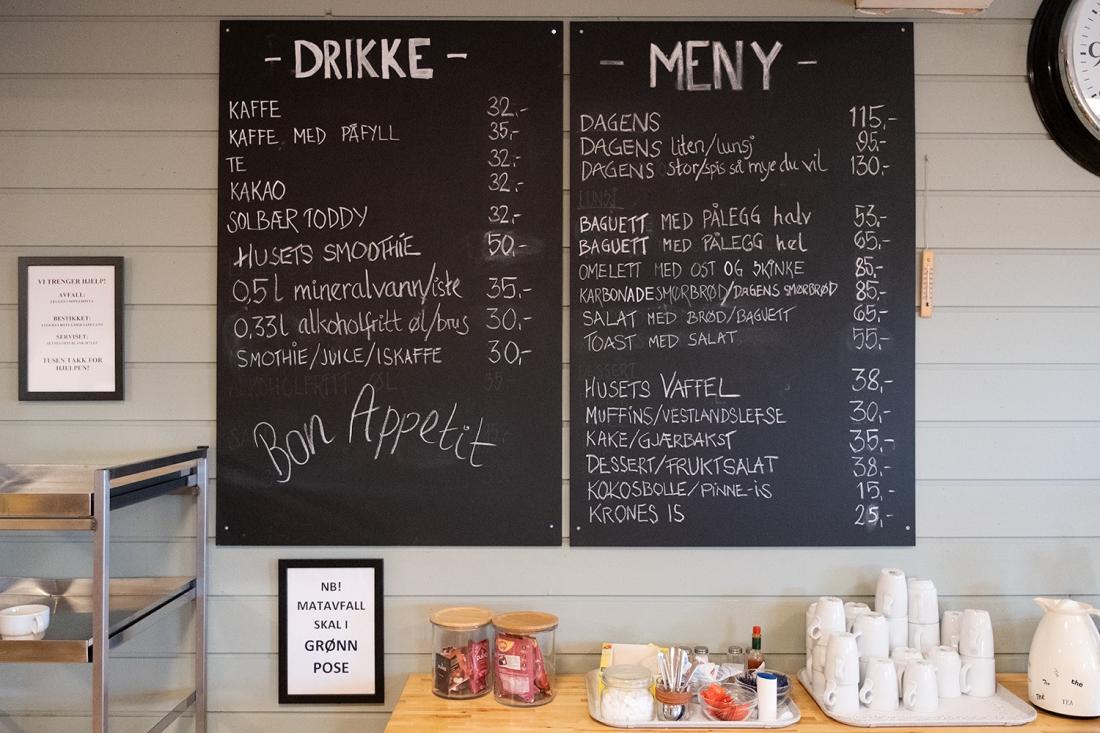 - DRIKKE -
KAFFE 32,-
KAFFE MED PÅFYLL 35,-
TE 32,-
KAKAO 32,-
SOLBÆR TODDY 32,-
HUSETS SMOOTHIE 50,-
0,5 l mineralvann/iste 35,-
0,33 l alkoholfritt øl/brus 30,-
SMOTHIE/JUICE/ISKAFFE 30,-
ALKOHOLFRITT ØL 35
Bon Appetit
- MENY -
DAGENS 115,-
DAGENS liten/lunsj 95,-
DAGENS stor/spis så mye du vil 130,-
LUNSJ
BAGUETT MED PÅLEGG halv 53,-
BAGUETT MED PÅLEGG hel 65,-
OMELETT MED OST OG SKINKE 85,-
KARBONADESMØRBRØD/DAGENS SMØRBRØD 85,-
SALAT MED BRØD/BAGUETT 65,-
TOAST MED SALAT 55,-
DESSERT
HUSETS VAFFEL 38,-
MUFFINS/VESTLANDSLEFSE 30,-
KAKE/GJÆRBAKST 35,-
DESSERT/FRUKTSALAT 38,-
KOKOSBOLLE/PINNE-IS 15,-
KRONES IS 25,-
VI TRENGER HJELP!
AVFALL:
BESTIKKET:
SERVISET:
TUSEN TAKK FOR
HJELPEN!
NB!
MATAVFALL
SKAL I
GRØNN
POSE
the
TEA